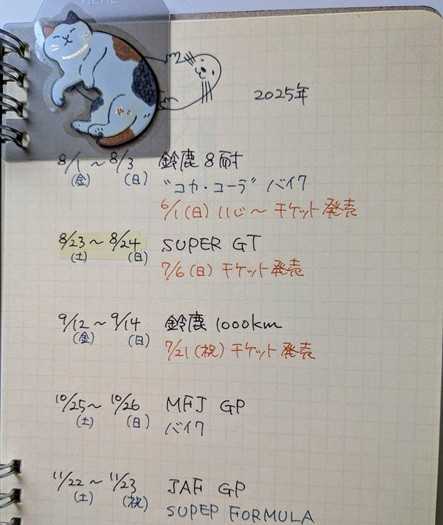 2025年
8/1～8/3 鈴鹿8耐
(金) (日) "コカ・コーラ" バイク
6/1(日) 11:00～ チケット発売
8/23～8/24 SUPER GT
(土) (日) 7/6(日) チケット発売
9/12～9/14 鈴鹿1000km
(金) (日) 7/21(祝) チケット発売
10/25～10/26 MFJ GP
(土) (日) バイク
11/22～11/23 JAF GP
(土) (祝) SUPER FORMULA